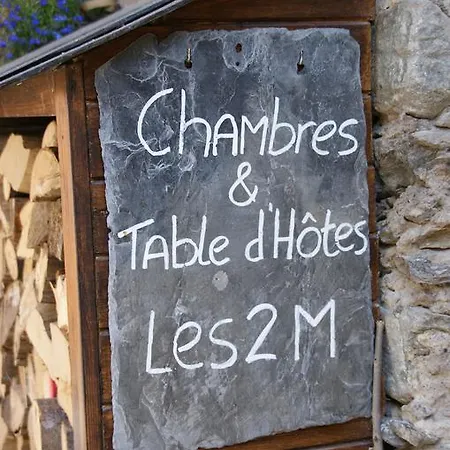 Chambres
&
Table d'Hôtes
Les 2 M